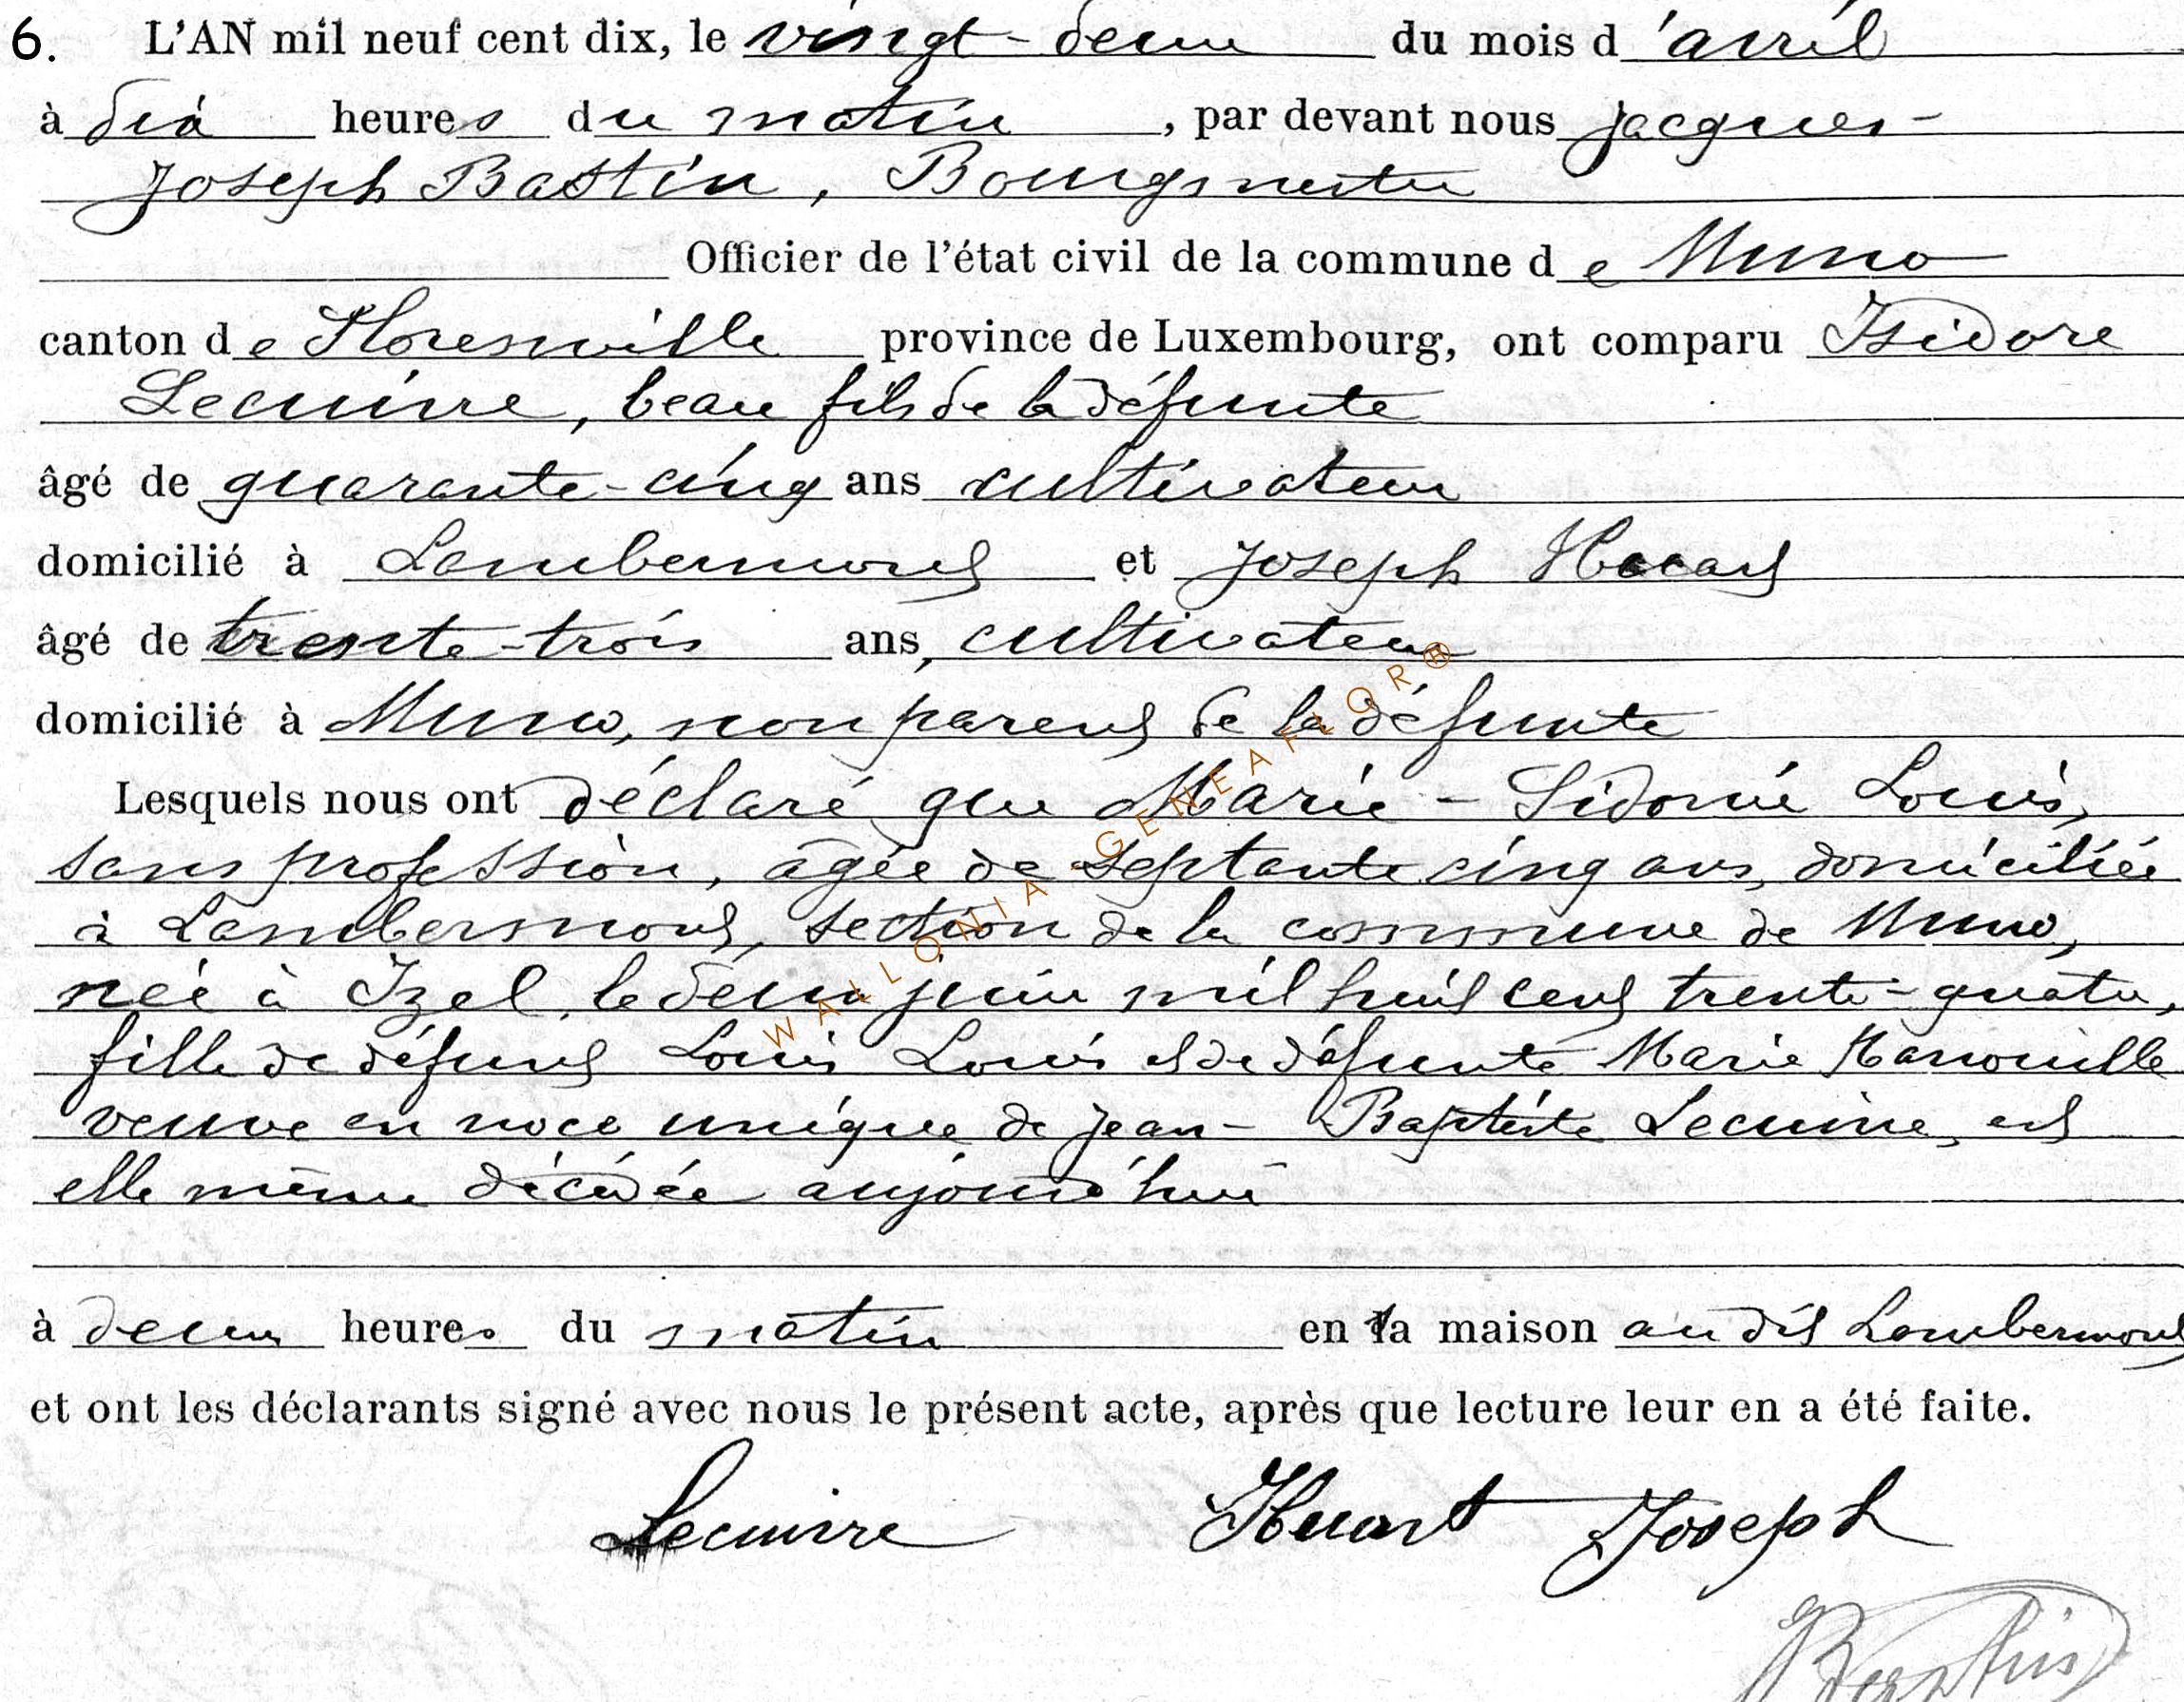 6. L'AN mil neuf cent dix, le vingt-deux du mois d'avril
à dix heures du matin, par devant nous Jacques-
Joseph Bastin, Bourgmestre
Officier de l'état civil de la commune de Muno
canton de Florenville province de Luxembourg, ont comparu Isidore
Lecuivre, beau fils de la défunte
âgé de quarante-cinq ans cultivateur
domicilié à Lambermont et Joseph
âgé de trente-trois ans, cultivateur
domicilié à Muno, non parent de la défunte
Lesquels nous ont déclaré que Marie-Sidonie Louis,
sans profession, âgée de septante cinq ans, domiciliée
à Lambermont, section de la commune de Muno,
née à Izel, le deux juin mil huit cent trente-quatre,
fille de défunt Louis Louis et de défunte Marie
veuve en noce unique de Jean-Baptiste Lecuivre, est
elle même décédée aujourd'hui
à deux heures du matin en sa maison au dit Lambermont
et ont les déclarants signé avec nous le présent acte, après que lecture leur en a été faite.
Lecuivre Huart Joseph
Bastin
WALLONIA-GENEAFLOR®